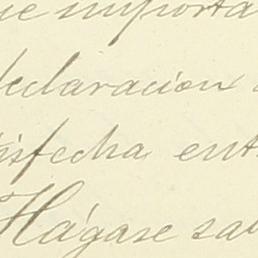 ue importa
declaracion
isfecha ent
Hágase sab